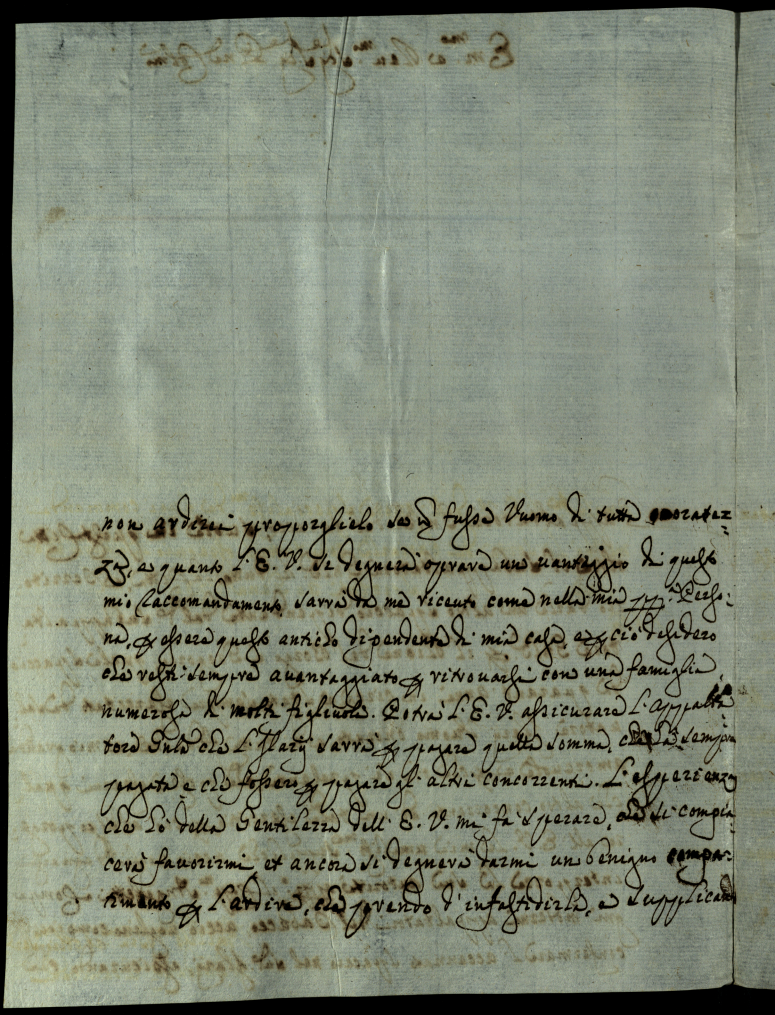 non ardirei proporglielo se nõ fusse Vuomo di tutta onoratez=
za, e quanto l'E. V. si degnerà oprare un vantaggio di questo
mio Raccomandamento sarrà da me riceuto come nella mia pp.ª Perso=
na, ꝑ essere questo anticho dipendente di mia casa, e ꝑ ciò desidero
che resti sempre avantaggiato ꝑ ritrovarsi con una famiglia
numerosa di molti figlivoli. Potrà l'E. V. assicurare l'Appalta=
tore che l'Ilarij sarrà ꝑ pagare quella somma, che hà sempre
pagata e che fossero ꝑ pagare gl'altri concorrenti. L'esperienza
che hò della Gentilezza dell'E. V. mi fà sperare, che si compia=
cerà favorirmi, et ancora si degnerà darmi un benigno compa=
timento ꝑ l'ardire, che prendo d'infastidirla, e supplicando